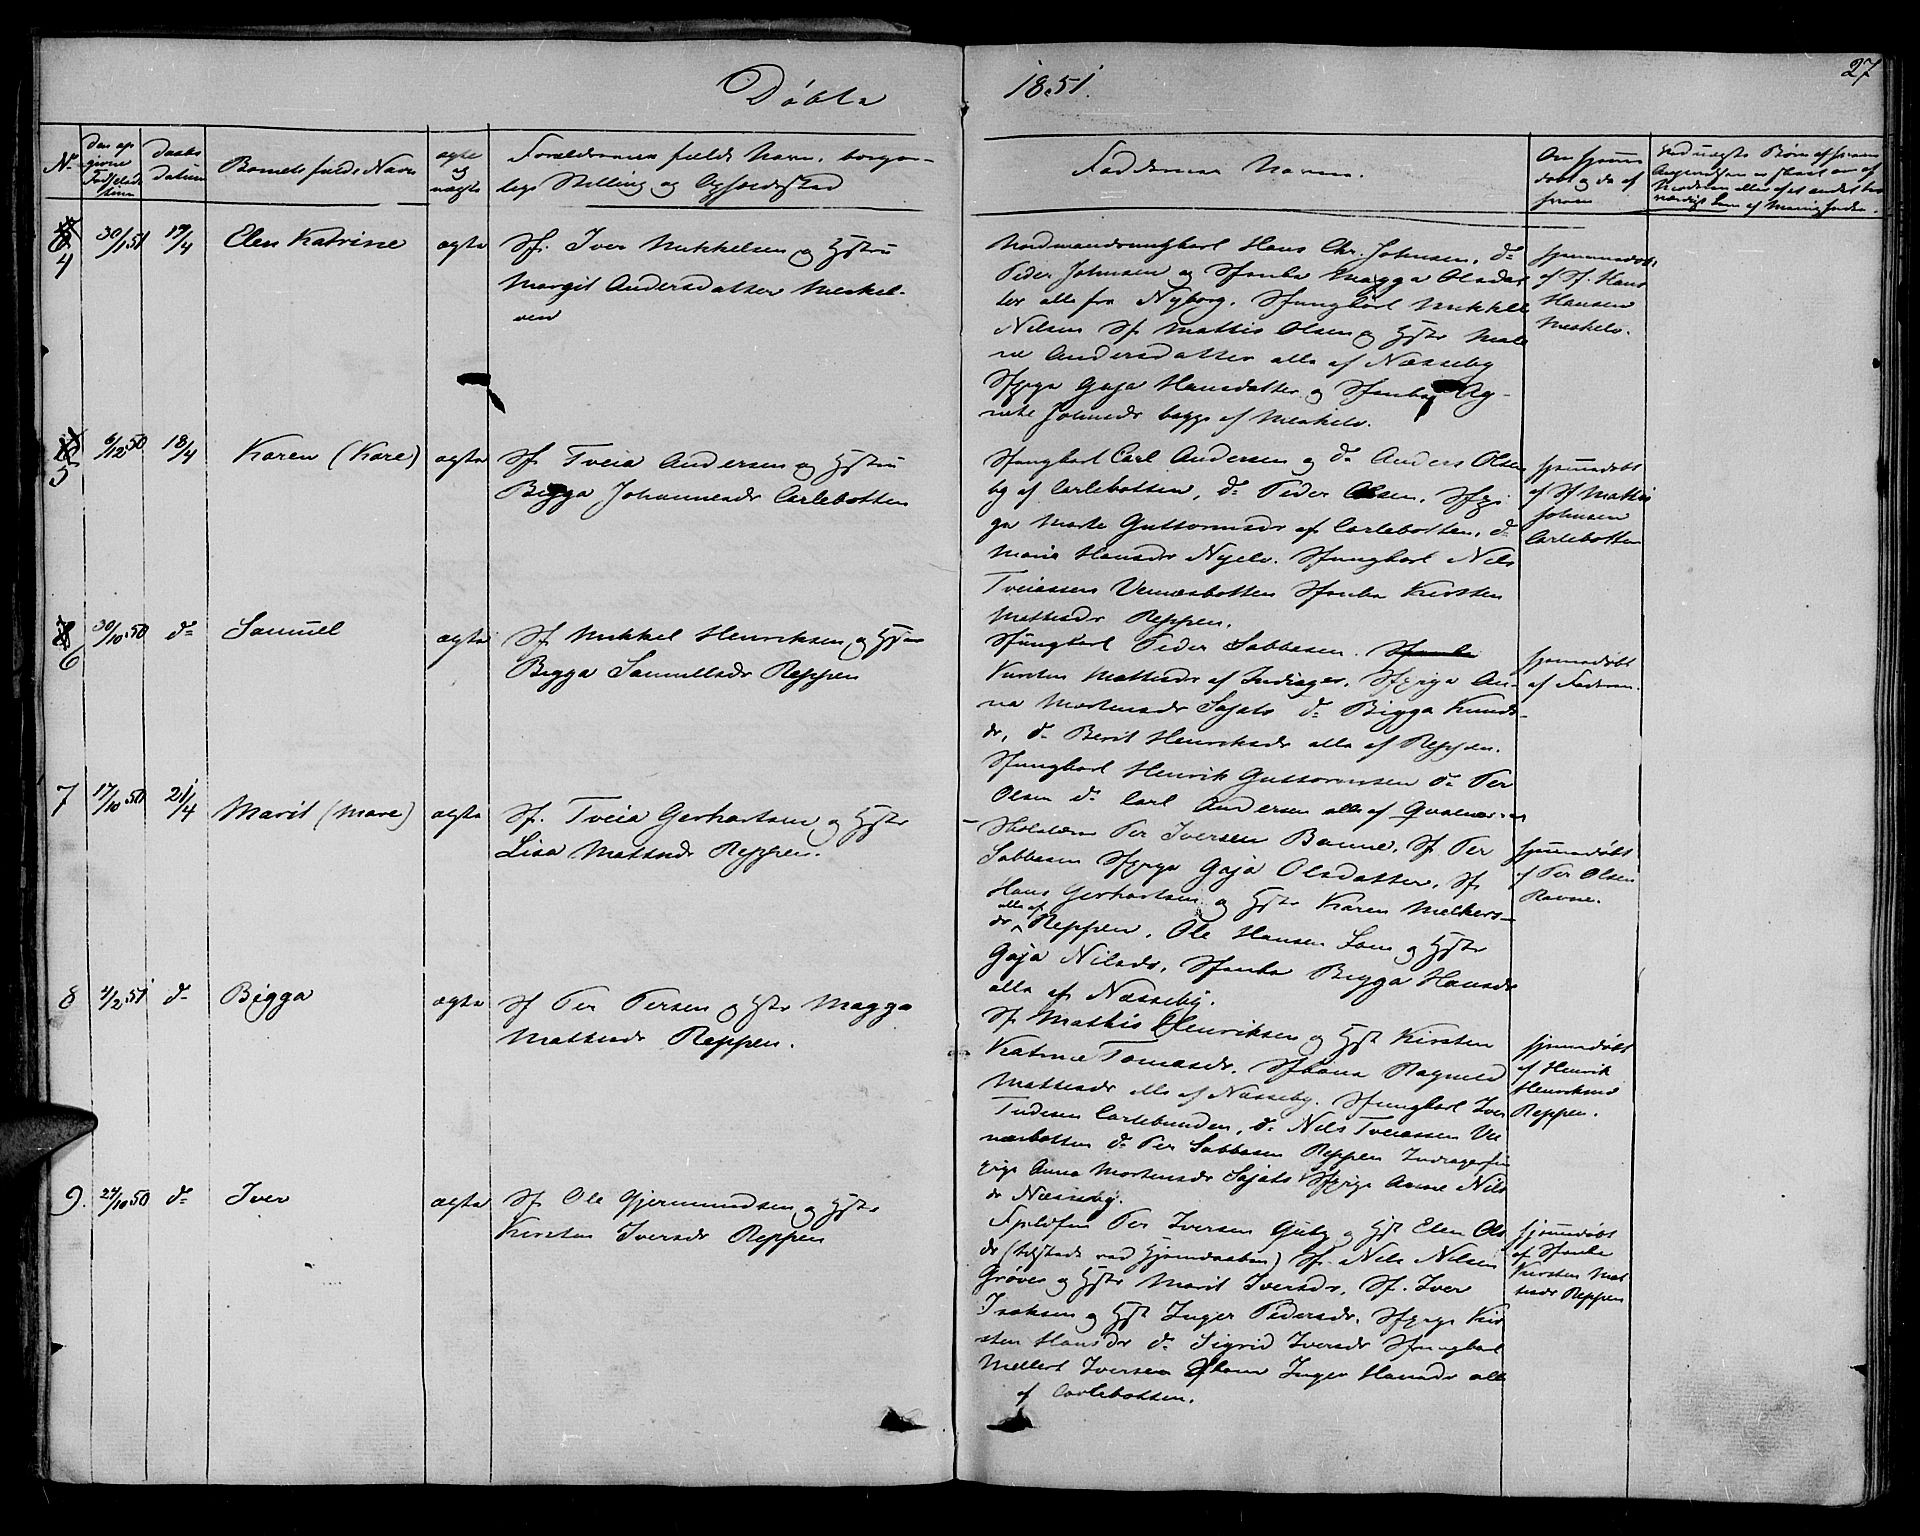 Döbte
1851.
27
No
den op
givne
Fødselsda
tum
Daabs
datum
Barnets fulde Navn
ægte
og
uægte
Forældrenes fulde Navn, borger-
lige Stilling og Opholdssted
Faddernes Navne.
Om hjemme
døbt og da af
hvem
4
30/1 51
19/4
Elen Katrine
ægte
Sf. Iver Mikkelsen og Hstru
Margit Andersdatter Meskel-
ven
Nordmandsungkarl Hans Chr. Johnsen, do
Peder Johnsen og Magga Olsdat
ter alle fra Nyborg. Sfungkarl Mikkel
Nilsen Sf Mattis Olsen og Hstr Mal
ne Andersdatter alle af Næsseby
Sfpige Gaja Hansdatter og Ag-
nete Johnsdr begge af Meskelv.
hjemmedøbt
af Sf. Hans
Hansen
Meskelv.
5
6/12 50
18/4
Karen (Kare)
ægte
Sf. Tveia Andersen og Hstru
Bigga Johannesdr Carlebotten
Sfungkarl Carl Andersen og do Anders Olsen
bg af Carlebotten, do Peder Olsen, Sfpi-
ge Marte Guttormsdr af Carlebotten, do
Marie Hansdr Nyelv. Sfungkarl Nils
Tveiassen Vernæsbotten Kirsten
Mattisdr Reppen.
hjemmedøbt
af Sf Mattis
Johnsen
Carlebotten
6
30/10 50
do
Samuel
ægte
Sf Mikkel Henriksen og Hstr
Bigga Samuelsdr Reppen
Sfungkarl Peder Sabbasen.
Kirsten Mattisdr af Indiager, Sfpige An-
na Mortensdr Sajats do Bigga Knuds-
dr, do Berit Henriksdr alle af Reppen.
hjemmedøbt
af Faderen.
7
17/10 50
21/4
Marit (Mare)
ægte
Sf. Tveia Gerhartsen og Hstr
Lisa Mattisdr Reppen.
Sfungkarl Henrik Guttormsen do Per
Olsen do Carl Andersen alle af
Skolelærer Per Iversen Banne, Sf Per
Sabbasen Sfpige Gaja Olsdatter, Sf
Hans Gerhartsen og Hstr Karen Melkers-
dr alle af Reppen, Ole Hansen og Hstr
Gaja Nilsdr, Bigga Hansdr
alle af Næsseby.
hjemmedøbt
af Per Olsen
Ravne.
8
4/2 51
do
Bigga
ægte
Sf Per Persen og Hstr Magga
Mattisdr Reppen.
Sf Mathis Henriksen og Hst Kirsten
Katrine Tomasdr, Ragnild
Mattisdr alle af Næsseby. Sfungkarl Iver
Tudesen Carlebunden, do Nils Tveiassen Ve
næsbotten do Per Sabbasen Reppen
pige Anna Mortensdr Sajats Sfpige Anne Nils
dr Næsseby.
hjemmedøbt
af Henrik
Henriksen
Reppen.
9.
24/10 50
do
Iver
ægte
Sf. Ole Gjermundsen og Hstr
Kirsten Iversdr Reppen
Per Iversen og Hst Elen Ols
dr (tilstede ved Hjemdaaben) Sf. Nils Nilsen
Grøver og Hstr Marit Iversdr, Sf. Iver
Isaksen og Hst Inger Pedersdr, Sfpige Kir
sten Hansdr do Sigrid Iversdr Sfungkarl
Mellert Iversen Inger Hansdr alle
af Carlebotten.
hjemmedøbt
af
Kirsten Mat
tisdr Reppen